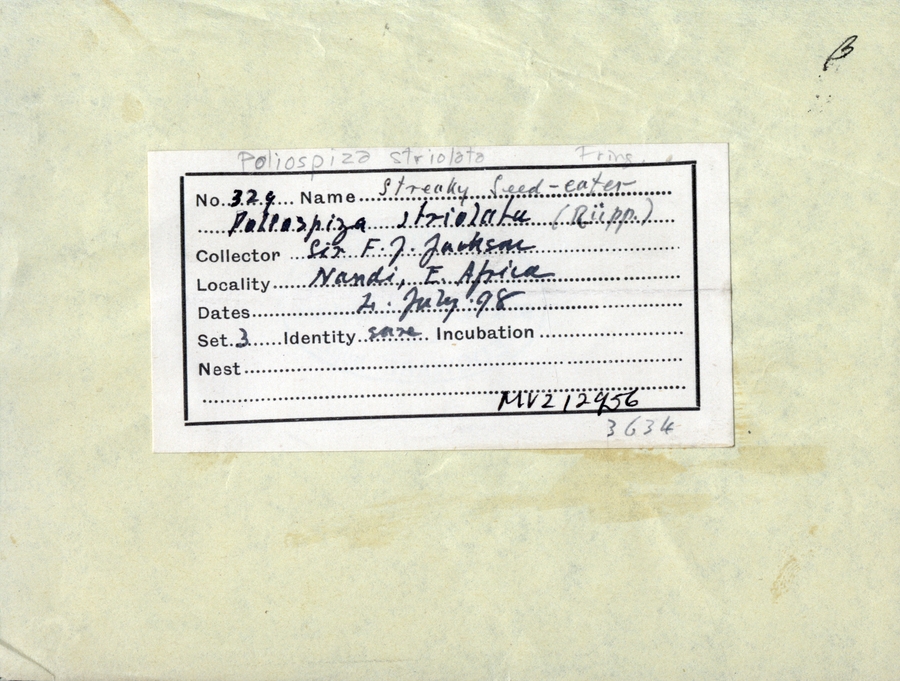 β
Poliospiza striolata Fring.
No. 329 Name Streaky Seed-eater
Poliospiza striolata (Rüpp.)
Collector Sir F. J. Jackson
Locality Nandi, E. Africa
Dates 2. July 98
Set. 3 Identity sure Incubation
Nest
MVZ 12956
3634